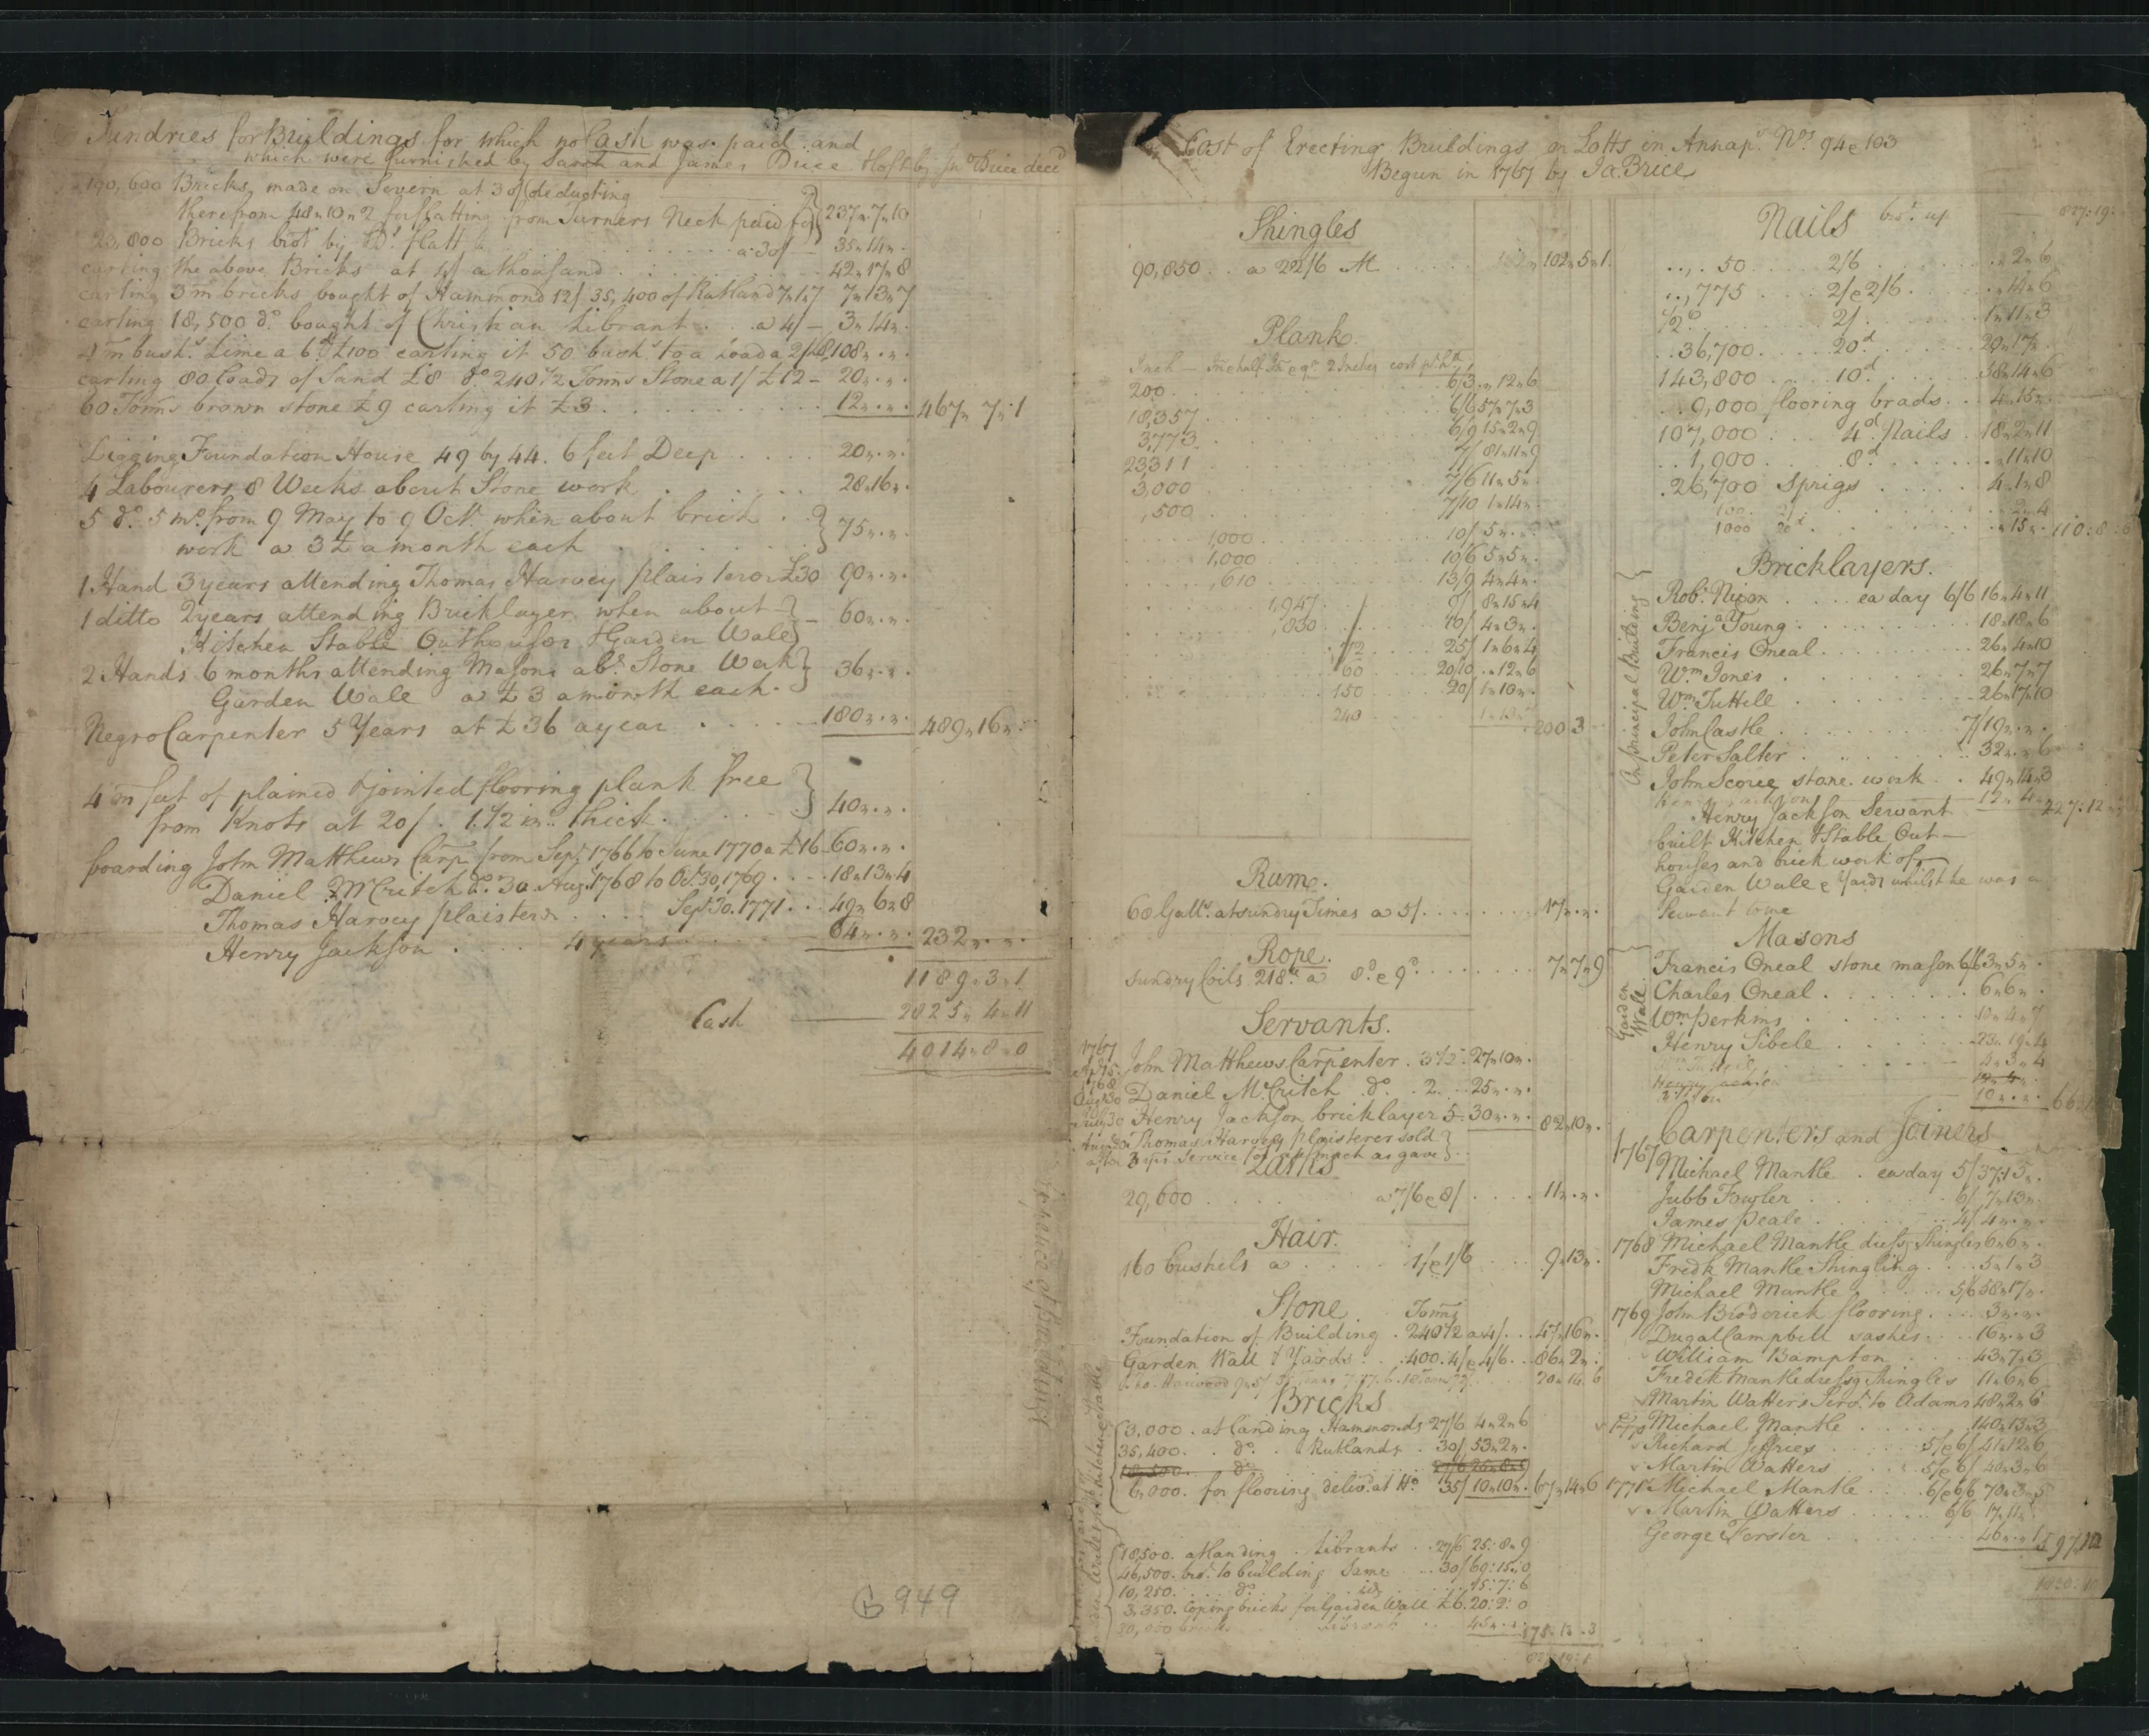 Sundries for Buildings for which no Cash was paid and
which were furnished by Sarah and James Brice & left by Jno Brice decd
190,600 Bricks, made on Severn at 30/ deducting
therefrom 48„10„2 for flatting from Turners Neck paid for } 237„7„10
23,800 Bricks bot by Do flatt a 30/ 35„14„.
carting the above Bricks at 4/ a thousand 42„17„8
carting 3m bricks bought of Hammond 12/ 35,400 of Rutland 7„1„7 7„13„7
carting 18,500 do bought of Christian Librant . . a 4/ — 3„14„.
4m bushs Lime a 6d £100 carting it 50 bushs to a Load a 2/ £8 108„.„.
carting 80 loads of Sand £8 do 240 1/2 Tonns Stone a 1/ £12 – 20„.„.
60 Tonns brown stone £9 carting it £3 12„.„. 467„7„1
Digging Foundation House 49 by 44. 6 feet Deep 20„.„.
4 Labourers 8 Weeks about Stone work 28„16„.
5 do 5 mo from 9 May to 9 Octr when about brick
work a 3£ a month each } 75„.„.
1 Hand 3 years attending Thomas Harvey plaisterer £30 90„.„.
1 ditto 2 years attending Bricklayer when about } 60„.„.
Kitchen Stable Outhouses & Garden Wale
2 Hands 6 months attending Masons abt Stone Work } 36„.„.
Garden Wale a £3 a month each.
Negro Carpenter 5 Years at £36 a year 180„.„. 489„16„.
4m feet of plained & jointed flooring plank free
from Knots at 20/. 1.1/2 in.. thick. } 40„.„.
boarding John Matthews Carpr from Sept 1766 to June 1770 a £16 60„.„.
Daniel McCritch do 30 Augt 1768 to Oct 30, 1769 18„13„4
Thomas Harvey plaisterer Sept 30. 1771 49„6„8
Henry Jackson 4 years 64„.„. 232„.„.
1189„3„1
Cash 2825„4„11
4014„8„0
B 949
Expence of Buildings
Cost of Erecting Buildings on Lotts in Annaps Nos 94 & 103
Begun in 1767 by Ja: Brice
Shingles
90,850 . . a 22/6 M 102„5„1
Plank
Inch — Inch & half In & qr 2 Inches cost pr hd
200 6/3 „12„6
18,357 6/6 57„7„3
3,773 6/9 15„2„9
23311 7/ 81„11„9
3,000 7/6 11„5„.
,500 7/10 1„14„.
1,000 10/ 5„.„.
1,000 10/6 5„5„.
,610 13/9 4„4„.
1,947 9/ 8„15„4
,830 10/ 4„3„.
112 25/ 1„6„4
60 20/10 „12„6
150 20/ 1„10„.
240 200 3
Rum.
68 Galls. at sundry Times a 5/ 17„.„.
Rope.
sundry Coils 218lb a 8d & 9d 7„7„9
Servants.
1767
John Matthews Carpenter . 3 1/2 . 27„10„.
1768
Augt 30 Daniel McCritch do . 2 . . 25„.„.
July 30 Henry Jackson bricklayer 5 . 30„.„. 82„10„.
Thomas Harvey plaisterer sold
after 3 yrs service for as much as gave
Laths
29,600 a 7/6 & 8/ 11„.„.
Hair.
160 bushels a 1/ & 1/6 9„13„.
Stone. Tonns
Foundation of Building . 240 1/2 a 4/ 47„16„.
Garden Wall & Yards . . 400. 4/ & 4/6 86„2„.
Bricks
3,000 . at landing Hammonds 27/6 4„2„6
35,400 . . do . . Rutlands . 30/ 53„2„.
18,500 . . do 27/6 25„8„9
6,000. for flooring delivd at Ho 35/ 10„10„. 67„14„6
18,500. at landing . Librants . . 27/6 25:8„9
46,500. bro. to building Same . . 30/ 69:15:0
10,250. do 15:7:6
3,350. Coping bricks for Garden Wall £6. 20:2:0
20,000 bricks Librant 45„.„.
Nails brot up 827:19:
. . 50 2/6 . „2„6
. . 775 2/ & 2/6 . „14„6
2/ 1„11„3
. . 36,700 20d 29„17„
143,800 10d 38„14„6
. . 9,000 flooring brads . . 4„15„
107,000 4d Nails . 18„2„11
. . 1,900 8d . „11„10
. 26,700 Sprigs 4„1„8
100 . . 2/ „2„4
1000 20d . „15„. 110:8:6
Bricklayers.
On principal Building
Robt Nixon ea day 6/6 16„4„11
Benja Young 18„18„6
Francis Oneal 26„4„10
Wm Jones 26„7„7
Wm Tuttell 26„17„10
John Castle 7/ 19„.„.
Peter Salter 32„.„6
John Scoree stone work 49„14„3
Henry Jackson Servant
built Kitchen & Stable Out–
houses and brick work of
Garden Wale & Yards whilst he was a
Servant to me
Masons
Garden Wale
Francis Oneal stone mason 6/6 3„5„.
Charles Oneal 6„6„.
Wm Perkins 10„4„7
Henry Sibele 23„19„4
4„3„4
10„.„.
Carpenters and Joiners
1767 Michael Mantle . ea day 5/ 37„15„.
Jubb Fowler 6/ 7„13„.
James Peale 4/ 4„.„.
1768 Michael Mantle dressg Shingles 6„6„.
Fredk Mantle Shingling 5„1„3
Michael Mantle 5/6 38„17„.
1769 John Broderick flooring 3„.„.
Dugal Campbell sashes 16„.„3
William Bampton 43„7„3
Fredk Mantle dressg Shingles 11„6„6
Martin Watters Servt to Adams 48„2„6
1770 Michael Mantle 140„13„3
Richard Jeffries 5/ & 6/ 41„12„6
Martin Watters 5/ & 6/ 40„3„6
1771 Michael Mantle 6/ & 6/6 70„3„5
Martin Watters 6/6 17„11„.
George Forster 46„.„1